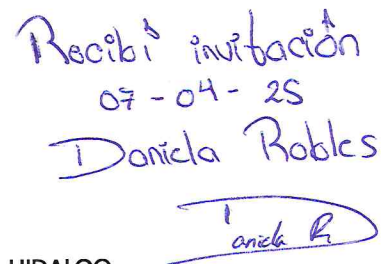 Recibí invitación
07-04-25
Daniela Robles
Daniela R
HIDALGO